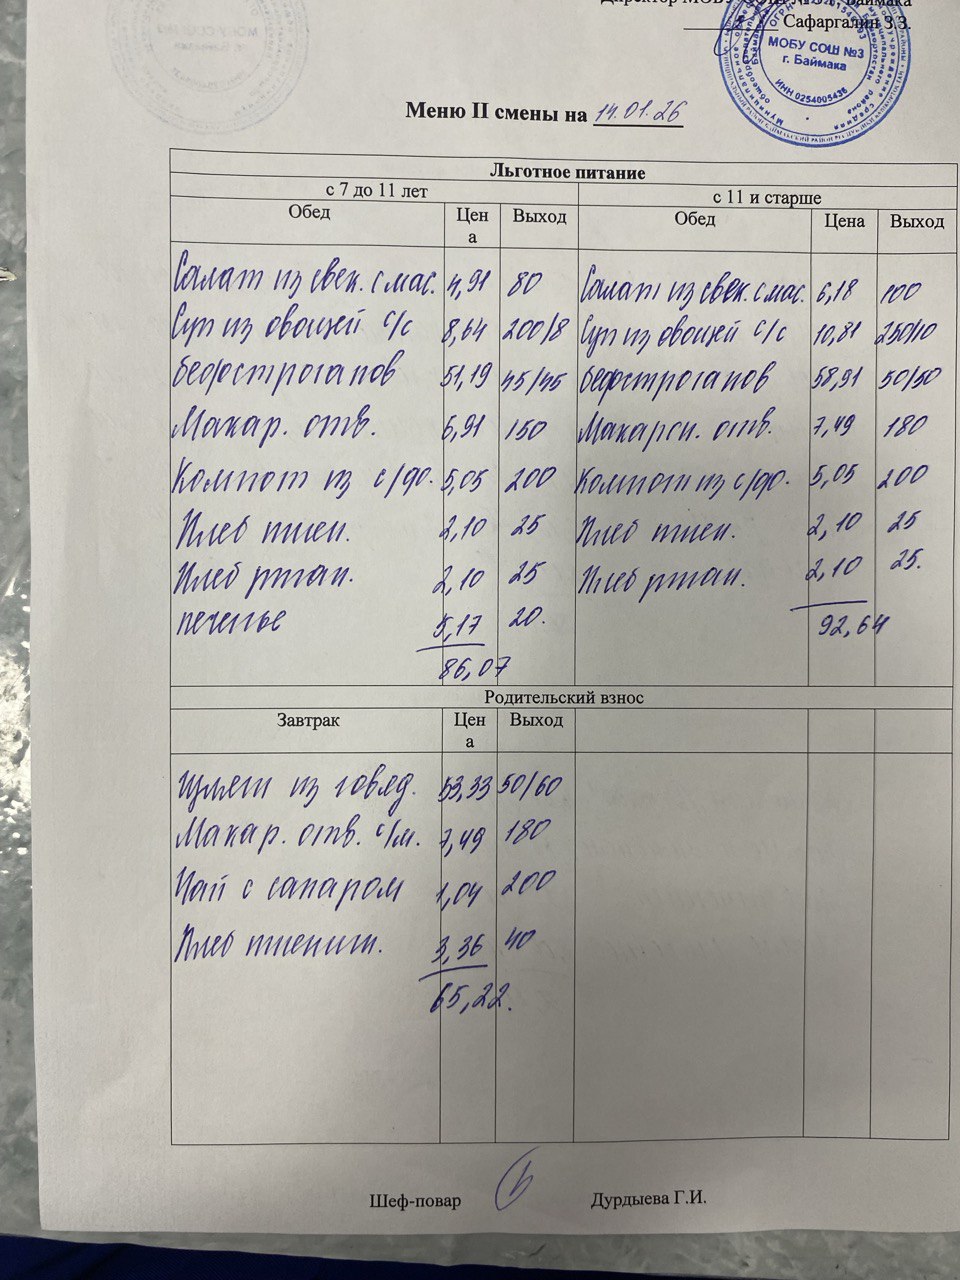 Директор МОБУ СОШ № Баймака
Сафаргалин З.З.
МОБУ СОШ №3
г. Баймака
ИНН 0254005436
Меню II смены на 14.01.26
Льготное питание
с 7 до 11 лет с 11 и старше
Обед Цена Выход Обед Цена Выход
Салат из свек. с мас. 4,91 80 Салат из свек. с мас. 6,18 100
Суп из овощей с/с 8,64 200/8 Суп из овощей с/с 10,81 250/10
бефстроганов 51,19 45/45 бефстроганов 58,91 50/50
Макар. отв. 6,91 150 Макарон. отв. 7,49 180
Компот из с/ф. 5,05 200 Компот из с/ф. 5,05 200
Хлеб пшен. 2,10 25 Хлеб пшен. 2,10 25
Хлеб ржан. 2,10 25 Хлеб ржан. 2,10 25.
печенье 5,17 20. 92,64
86,07
Родительский взнос
Завтрак Цена Выход
Гуляш из говяд. 53,33 50/60
Макар. отв. с/м. 7,49 180
Чай с сахаром 1,04 200
Хлеб пшенич. 3,36 40
65,22.
Шеф-повар Дурдыева Г.И.